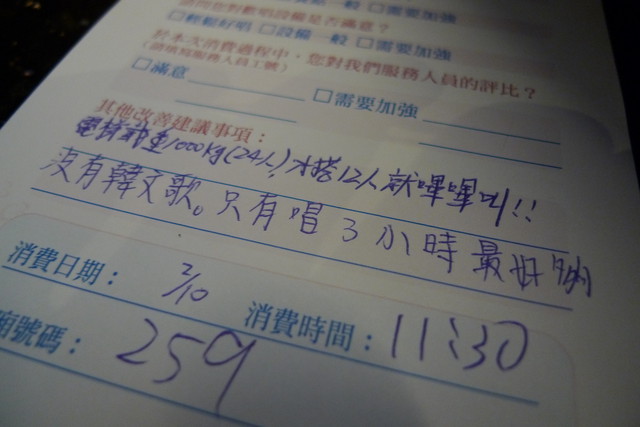 需要加強
請問您對歡唱設備是否滿意？
□輕鬆好唱 □設備一般 □需要加強
於本次消費過程中，您對我們服務人員的評比？
(請填寫服務人員工號)
□滿意 □需要加強
其他改善建議事項：
電梯 重1000kg(24人)才搭12人就嗶嗶叫!!
沒有韓文歌。只有唱3小時最好
消費日期： 2/10 消費時間： 11:30
廂號碼： 259